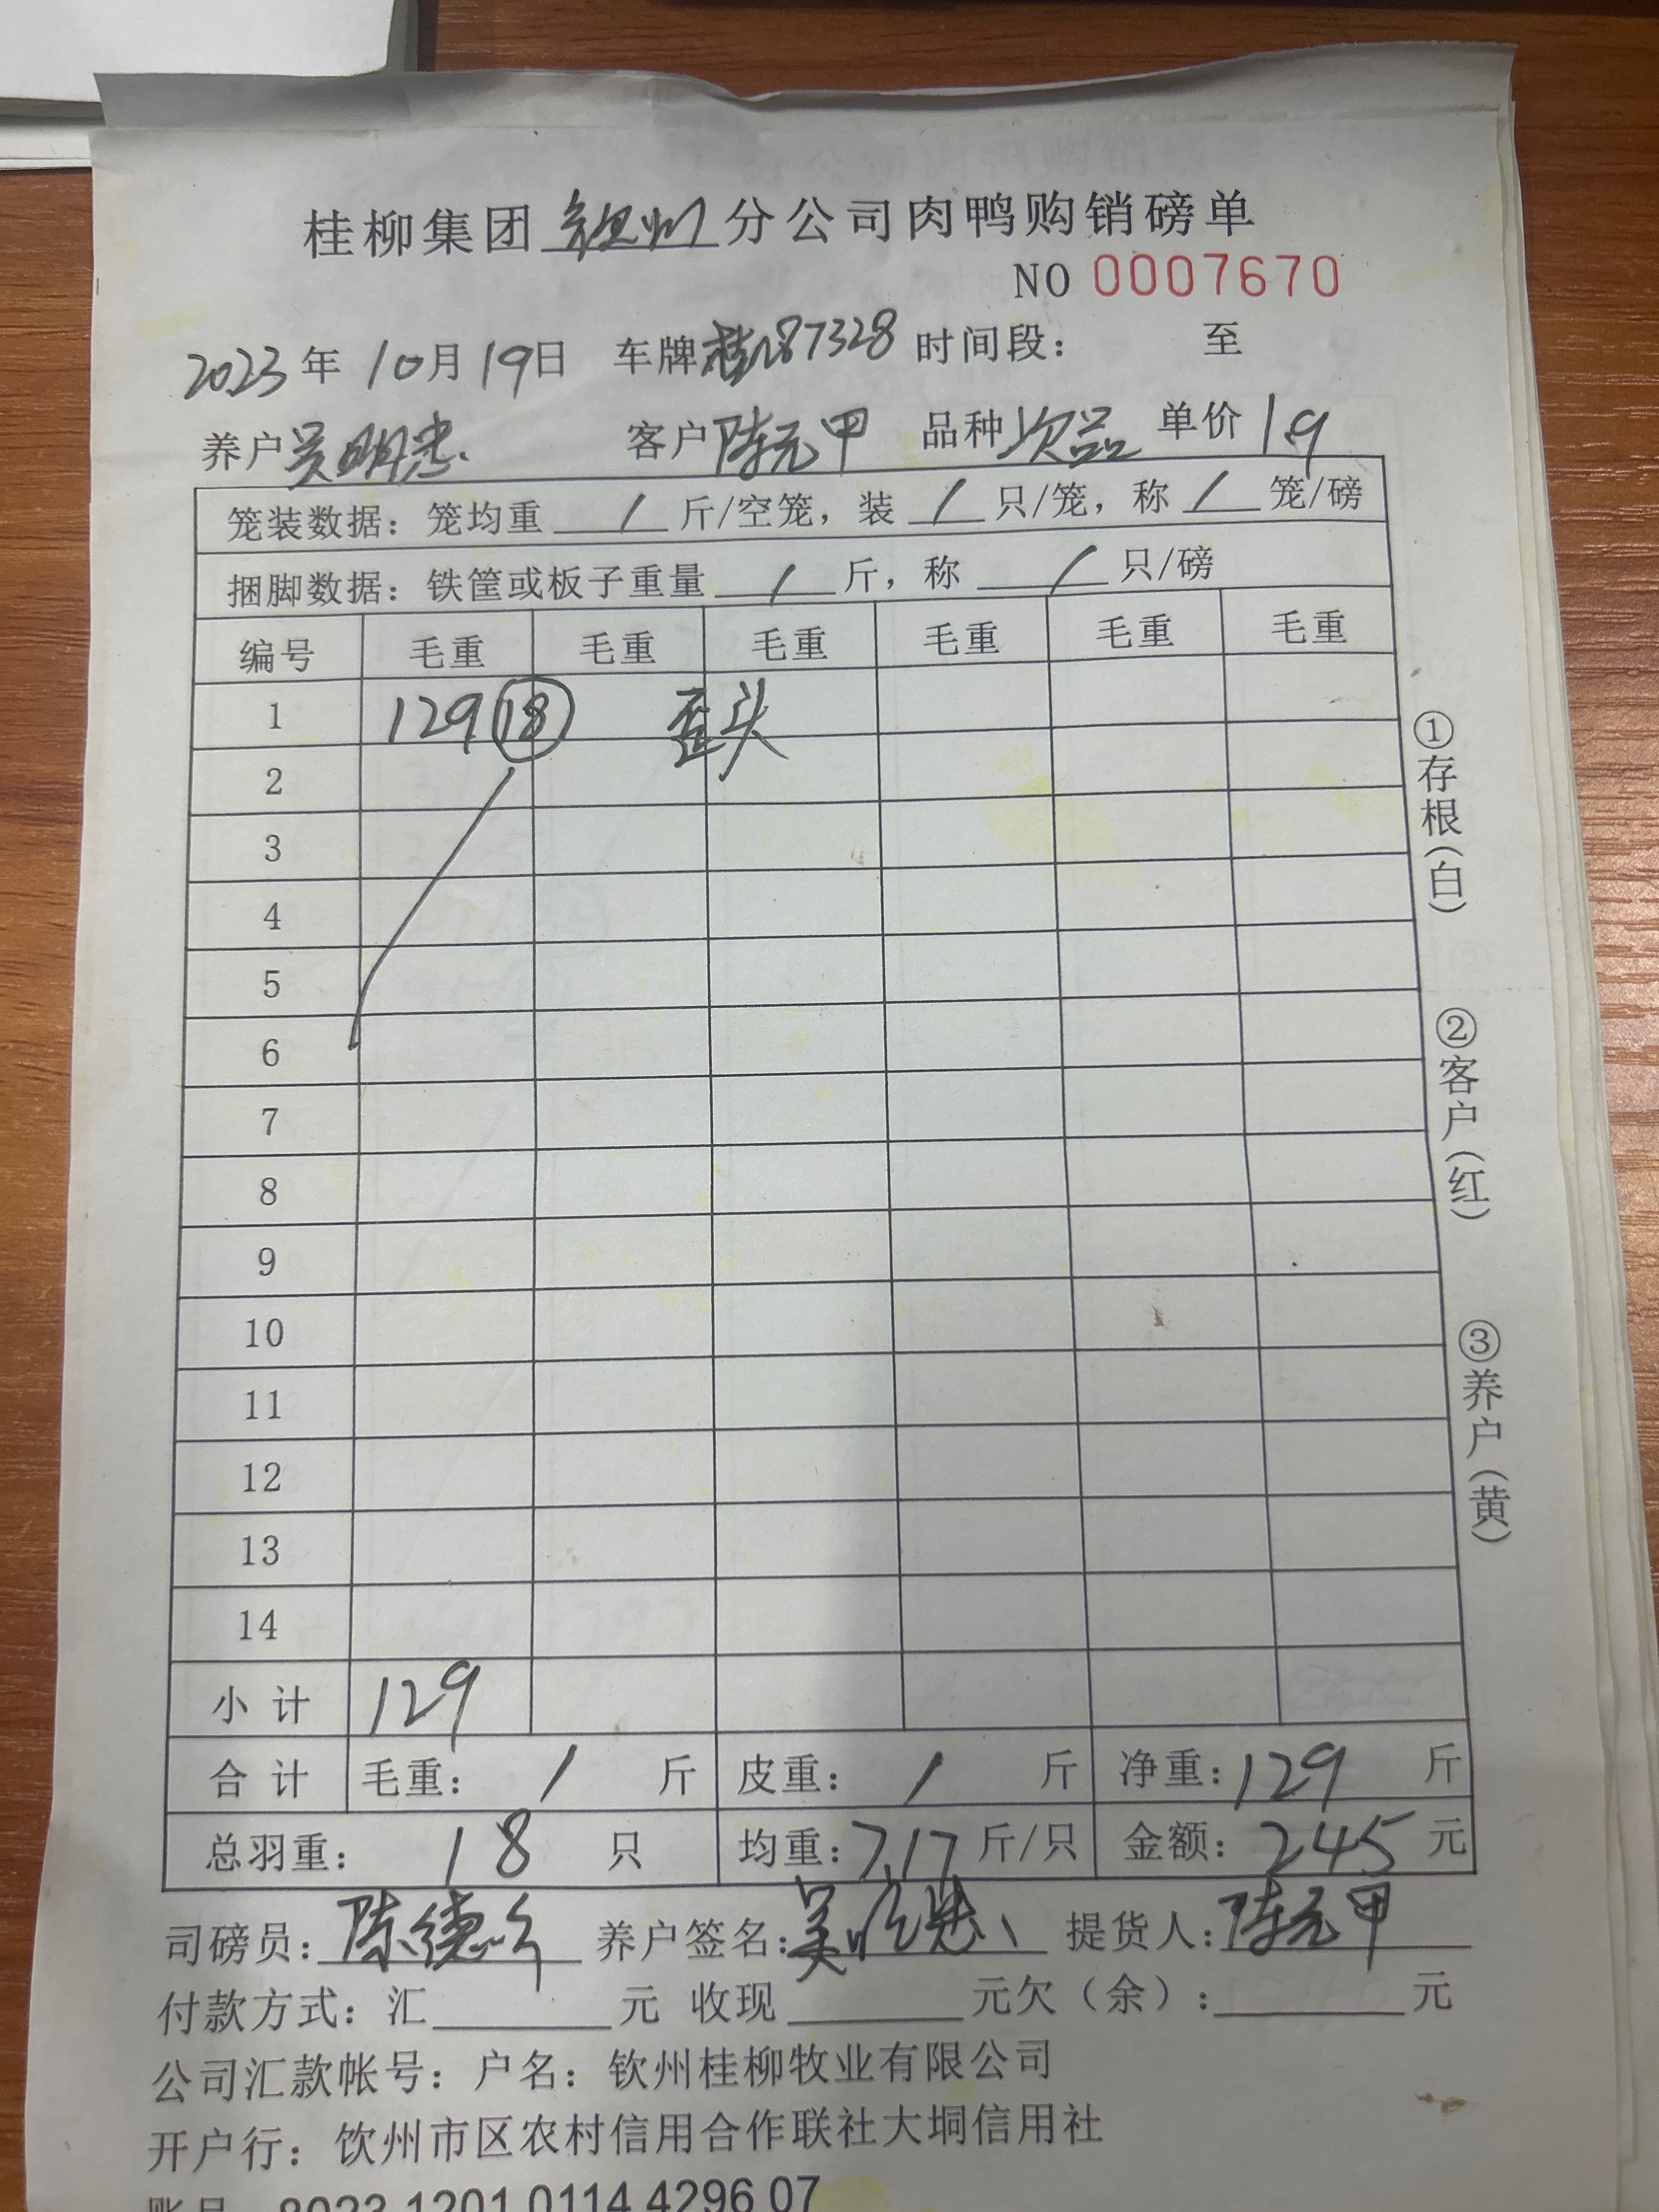 桂柳集团钦州分公司肉鸭购销磅单
NO 0007670
2023年10月19日 车牌桂N87328 时间段： 至
养户吴明忠 客户陈元甲 品种次品 单价1.9
笼装数据：笼均重 / 斤/空笼，装 / 只/笼，称 / 笼/磅
捆脚数据：铁筐或板子重量 / 斤，称 / 只/磅
编号 毛重 毛重 毛重 毛重 毛重 毛重
1 129 ⑱ 歪头
2
3
4
5
6
7
8
9
10
11
12
13
14
小计 129
合计 毛重： / 斤 皮重： / 斤 净重：129 斤
总羽重： 18 只 均重：7.17斤/只 金额：245元
司磅员：陈德 养户签名：吴明忠 提货人：陈元甲
付款方式：汇 元 收现 元欠（余）： 元
公司汇款帐号：户名：钦州桂柳牧业有限公司
开户行：饮州市区农村信用合作联社大垌信用社
账号 8023 1201 0114 4296 07
①存根（白）
②客户（红）
③养户（黄）